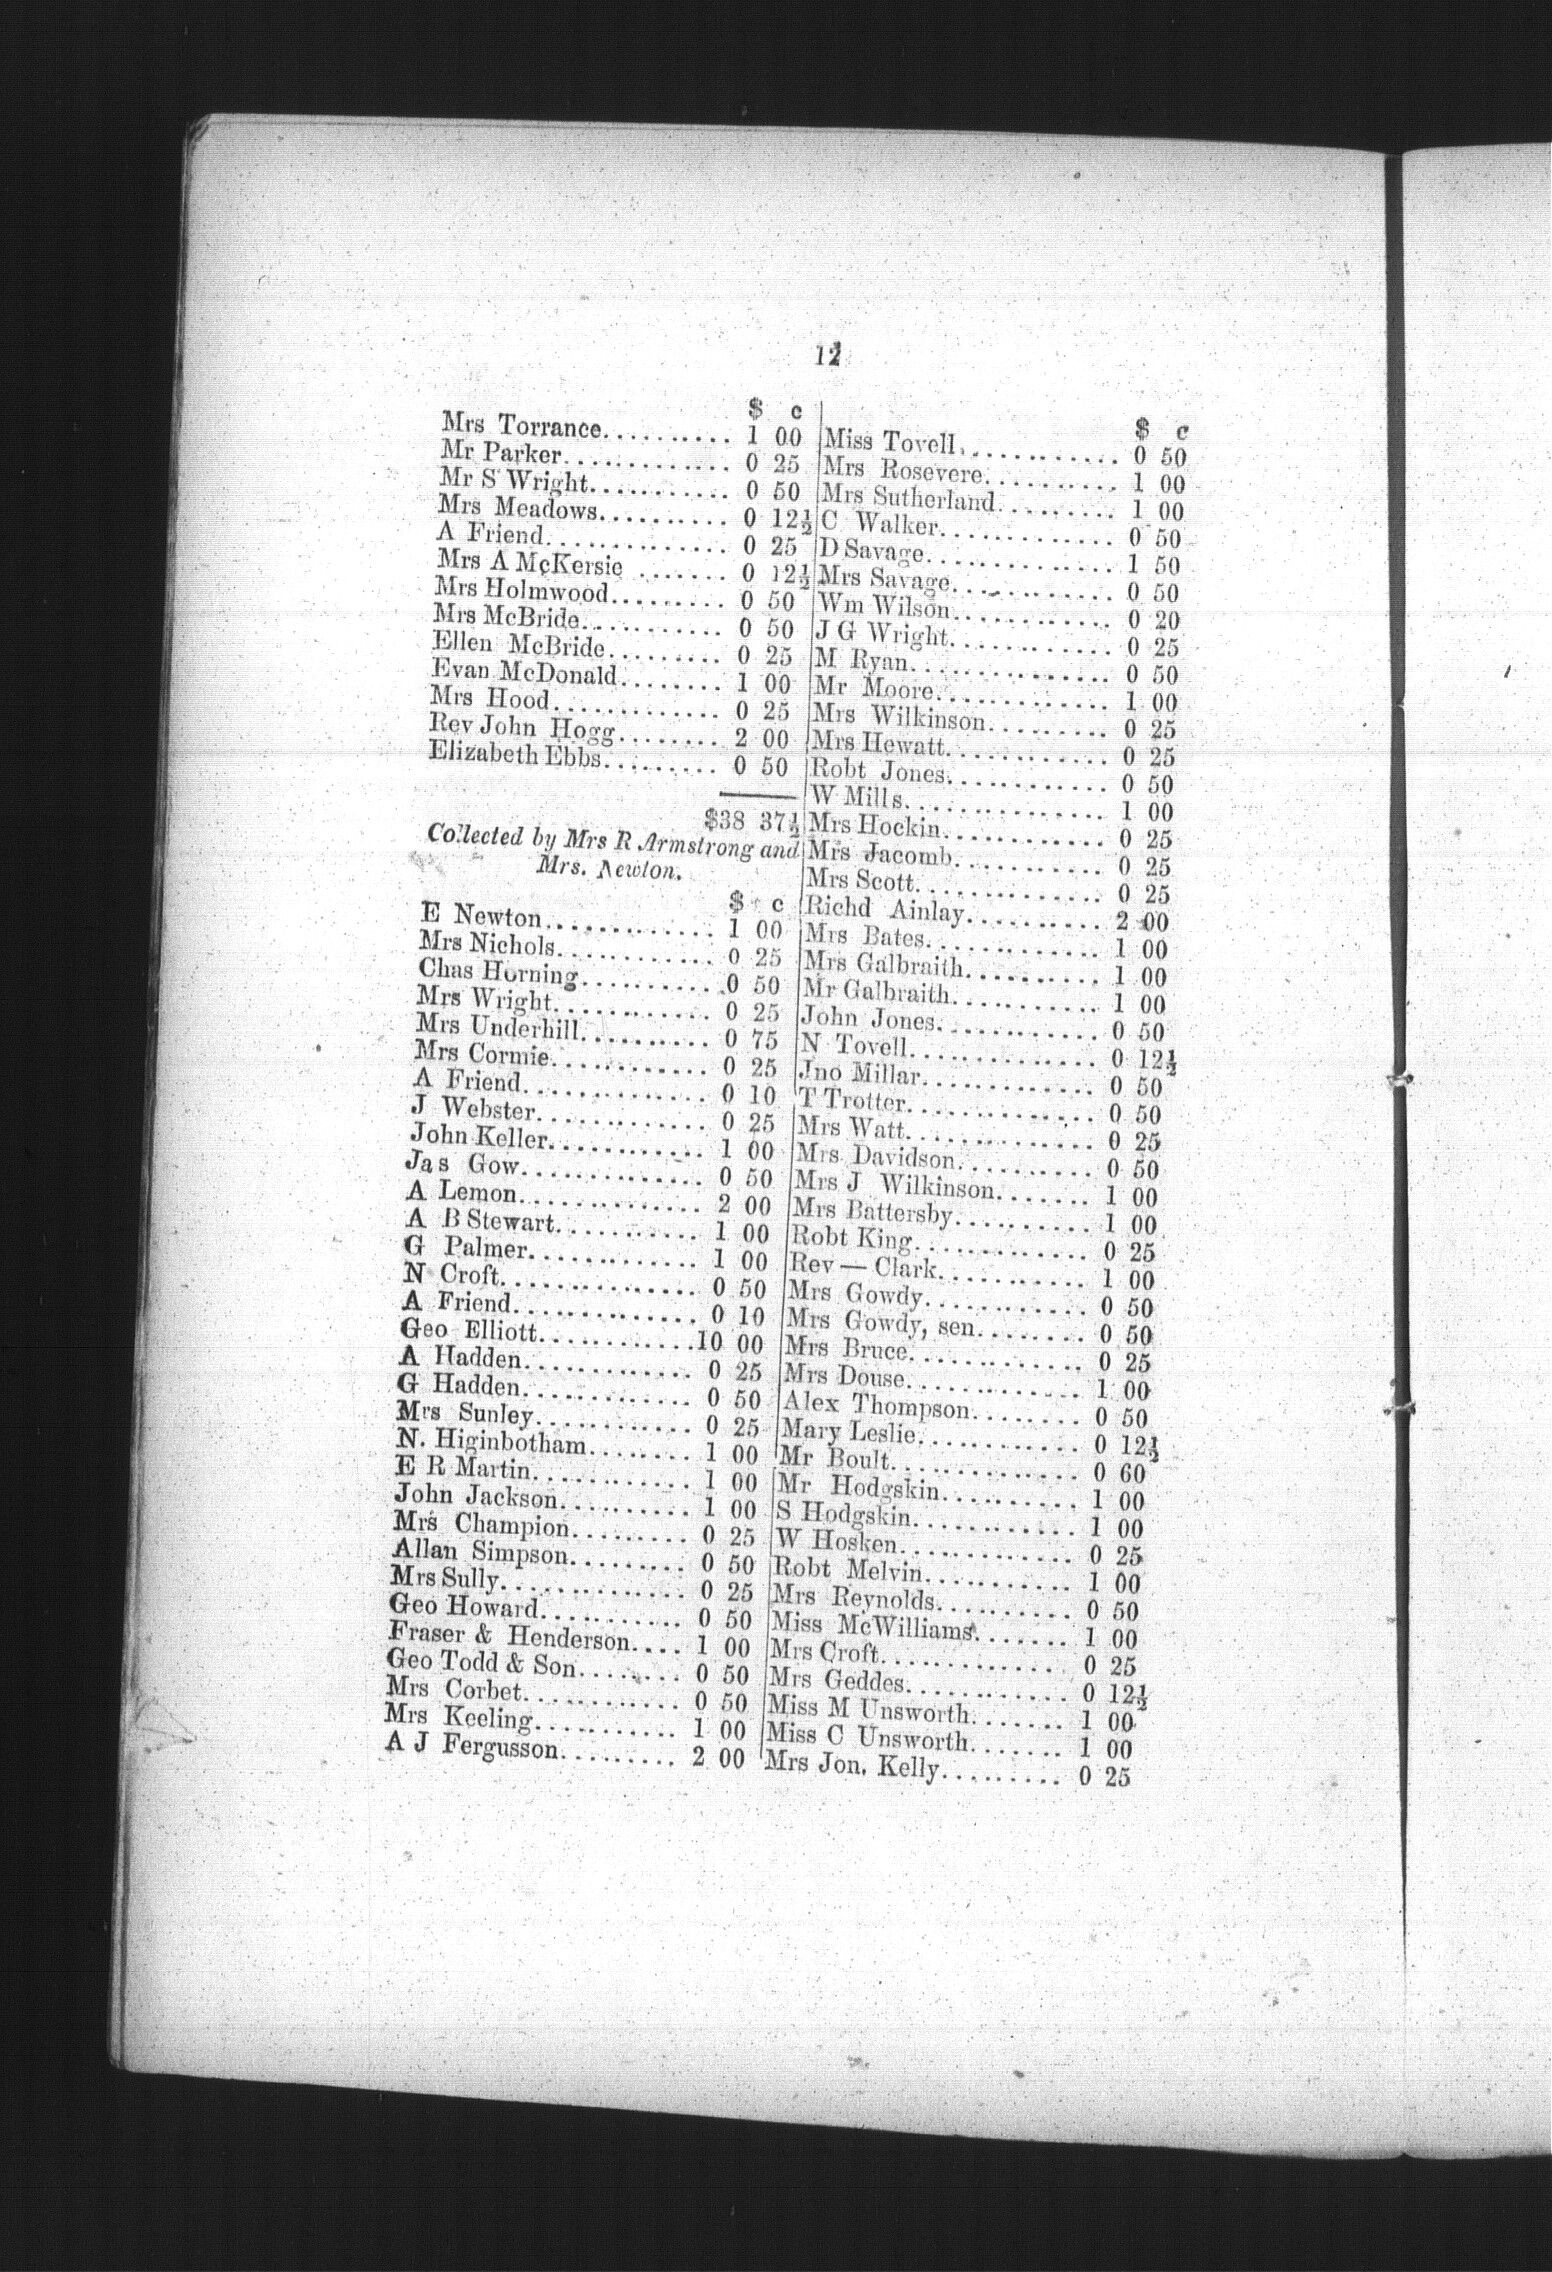 12
$ c
Mrs Torrance.......... 1 00
Mr Parker............. 0 25
Mr S Wright........... 0 50
Mrs Meadows.......... 0 12½
A Friend.............. 0 25
Mrs A McKersie ....... 0 12½
Mrs Holmwood......... 0 50
Mrs McBride........... 0 50
Ellen McBride......... 0 25
Evan McDonald........ 1 00
Mrs Hood............. 0 25
Rev John Hogg........ 2 00
Elizabeth Ebbs......... 0 50
$38 37½
Collected by Mrs R Armstrong and
Mrs. Newton.
$ c
E Newton............. 1 00
Mrs Nichols............ 0 25
Chas Horning........... 0 50
Mrs Wright............ 0 25
Mrs Underhill.......... 0 75
Mrs Cormie............ 0 25
A Friend.............. 0 10
J Webster............. 0 25
John Keller............ 1 00
Jas Gow.............. 0 50
A Lemon.............. 2 00
A B Stewart........... 1 00
G Palmer............. 1 00
N Croft............... 0 50
A Friend.............. 0 10
Geo Elliott............10 00
A Hadden............. 0 25
G Hadden............. 0 50
Mrs Sunley............ 0 25
N. Higinbotham........ 1 00
E R Martin............ 1 00
John Jackson.......... 1 00
Mrs Champion......... 0 25
Allan Simpson......... 0 50
Mrs Sully.............. 0 25
Geo Howard........... 0 50
Fraser & Henderson.... 1 00
Geo Todd & Son........ 0 50
Mrs Corbet............ 0 50
Mrs Keeling........... 1 00
A J Fergusson......... 2 00
$ c
Miss Tovell............ 0 50
Mrs Rosevere.......... 1 00
Mrs Sutherland......... 1 00
C Walker............. 0 50
D Savage.............. 1 50
Mrs Savage............ 0 50
Wm Wilson............ 0 20
J G Wright............ 0 25
M Ryan............... 0 50
Mr Moore............. 1 00
Mrs Wilkinson......... 0 25
Mrs Hewatt............ 0 25
Robt Jones............ 0 50
W Mills............... 1 00
Mrs Hockin............ 0 25
Mrs Jacomb........... 0 25
Mrs Scott............. 0 25
Richd Ainlay.......... 2 00
Mrs Bates............. 1 00
Mrs Galbraith.......... 1 00
Mr Galbraith........... 1 00
John Jones............ 0 50
N Tovell.............. 0 12½
Jno Millar............. 0 50
T Trotter.............. 0 50
Mrs Watt.............. 0 25
Mrs Davidson.......... 0 50
Mrs J Wilkinson....... 1 00
Mrs Battersby.......... 1 00
Robt King............. 0 25
Rev — Clark........... 1 00
Mrs Gowdy............ 0 50
Mrs Gowdy, sen........ 0 50
Mrs Bruce............. 0 25
Mrs Douse............. 1 00
Alex Thompson........ 0 50
Mary Leslie............ 0 12½
Mr Boult.............. 0 60
Mr Hodgskin.......... 1 00
S Hodgskin............ 1 00
W Hosken............. 0 25
Robt Melvin........... 1 00
Mrs Reynolds.......... 0 50
Miss McWilliams....... 1 00
Mrs Croft.............. 0 25
Mrs Geddes............ 0 12½
Miss M Unsworth....... 1 00
Miss C Unsworth....... 1 00
Mrs Jon. Kelly......... 0 25